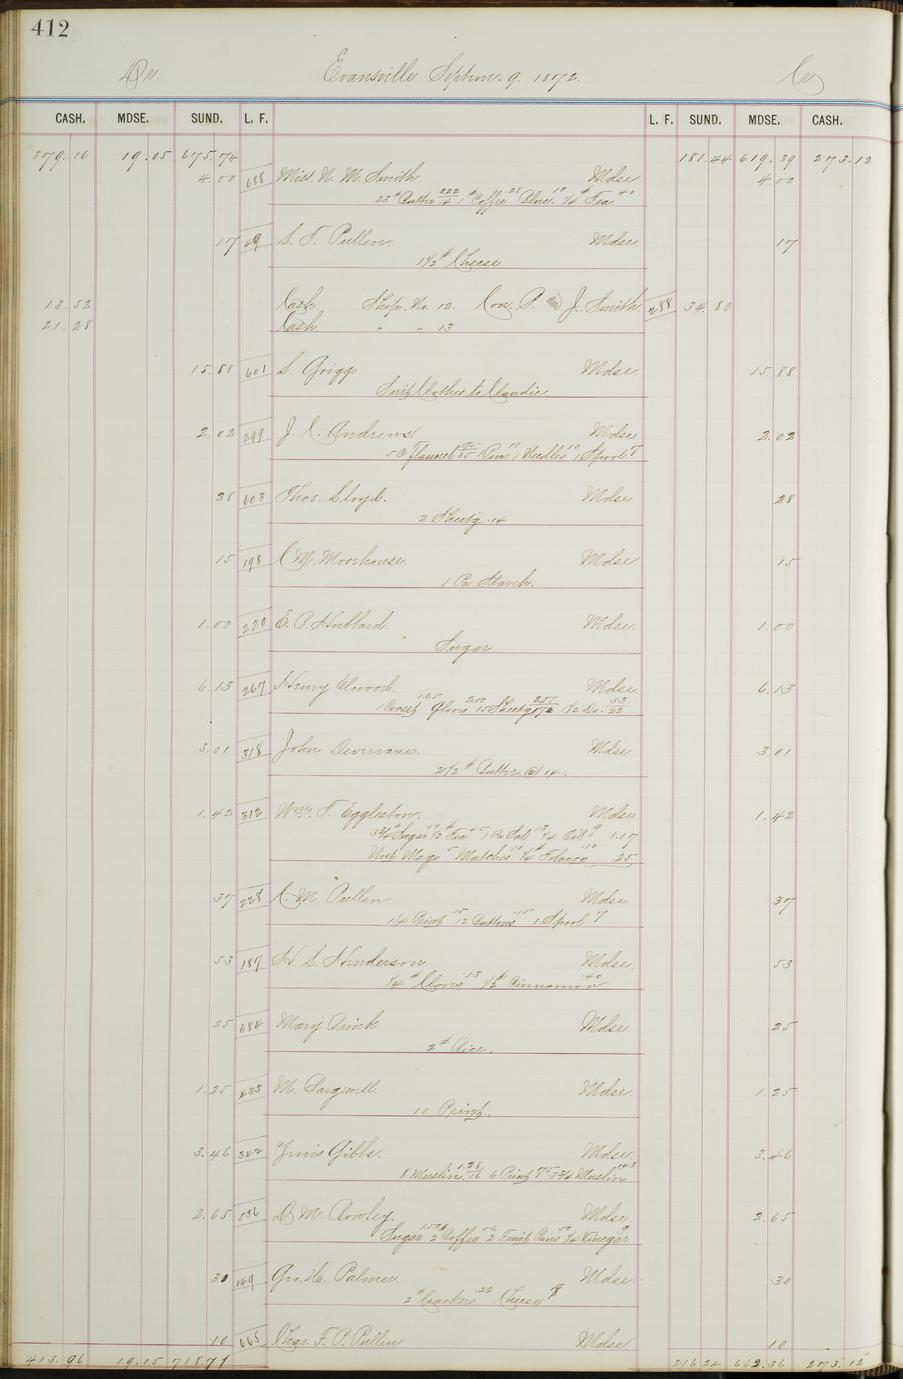 412
Dr. Evansville Septem. 9. 1872. Cr
CASH. MDSE. SUND. L. F. L. F. SUND. MDSE. CASH.
379.16 19.05 675.74 181.44 619.39 273.12
4.00 688 Miss. N. M. Smith. Mdse 4.00
23 # Butter 322/14 1 # Coffee .28 10 1/4 # Tea .40
17 49 S. T. Pullen. Mdse 17
1 1/2 # Cheese
13.52 Cash. Ship. No. 12. J. Smith 288 34.80
21.28 Cash. " " 13
15.88 601 S. Griggs Mdse 15.88
Suit Clothes to Claudie
2.02 299 J. C. Andrews. Mdse 2.02
Flannel 1 Pins 10 1 Needles 10 1 Spool 7
28 603 Thos. Lloyd. Mdse 28
2 Sheetg .14
15 198 C. M. Morehouse. Mdse 15
1 Pa Starch.
1.00 220 E. B. Hubbard. Mdse 1.00
Sugar.
6.13 267 Henry Elwood. Mdse 6.13
1 Corset 1.25 Gloves 2.00 15 Sheetg 255/17 1 1/2 Do. 33/22
3.01 318 John Mdse 3.01
21 1/2 # Butter. @ 14.
1.42 312 Wm. T. Eggleston. Mdse 1.42
Sugar 1/2 # Tea 1 Pa Sal 1/4 Oil 9 1.17
Nut Megs 5 Matches 10 1/4 # Tobacco 10 .25
37 228 C. M. Pullen. Mdse 37
1 1/4 Print 12 Buttons .15 1 Spool 7
53 187 H. S. Henderson. Mdse 53
1/4 # Cloves .13 1/2 # Cinnamon .40
25 684 Mary Brink. Mdse 25
2 # Rice.
1.25 M. Mdse 1.25
10 Print.
3.46 382 Gibbs. Mdse 3.46
8 Muslin. 1.28/16 6 Print 75 Muslin 143
2.65 536 D. M. Rowley. Mdse 2.65
Sugar 1.50 2 # Coffee 2 Fruit Cans 1/4 Vinegar 9
30 149 Geo. H. Palmer. Mdse 30
2 # Crackers .22 Cheese 8
10 665 Chas. F. P. Pullen Mdse 10
413.96 19.05 718.71 216.24 662.36 273.12